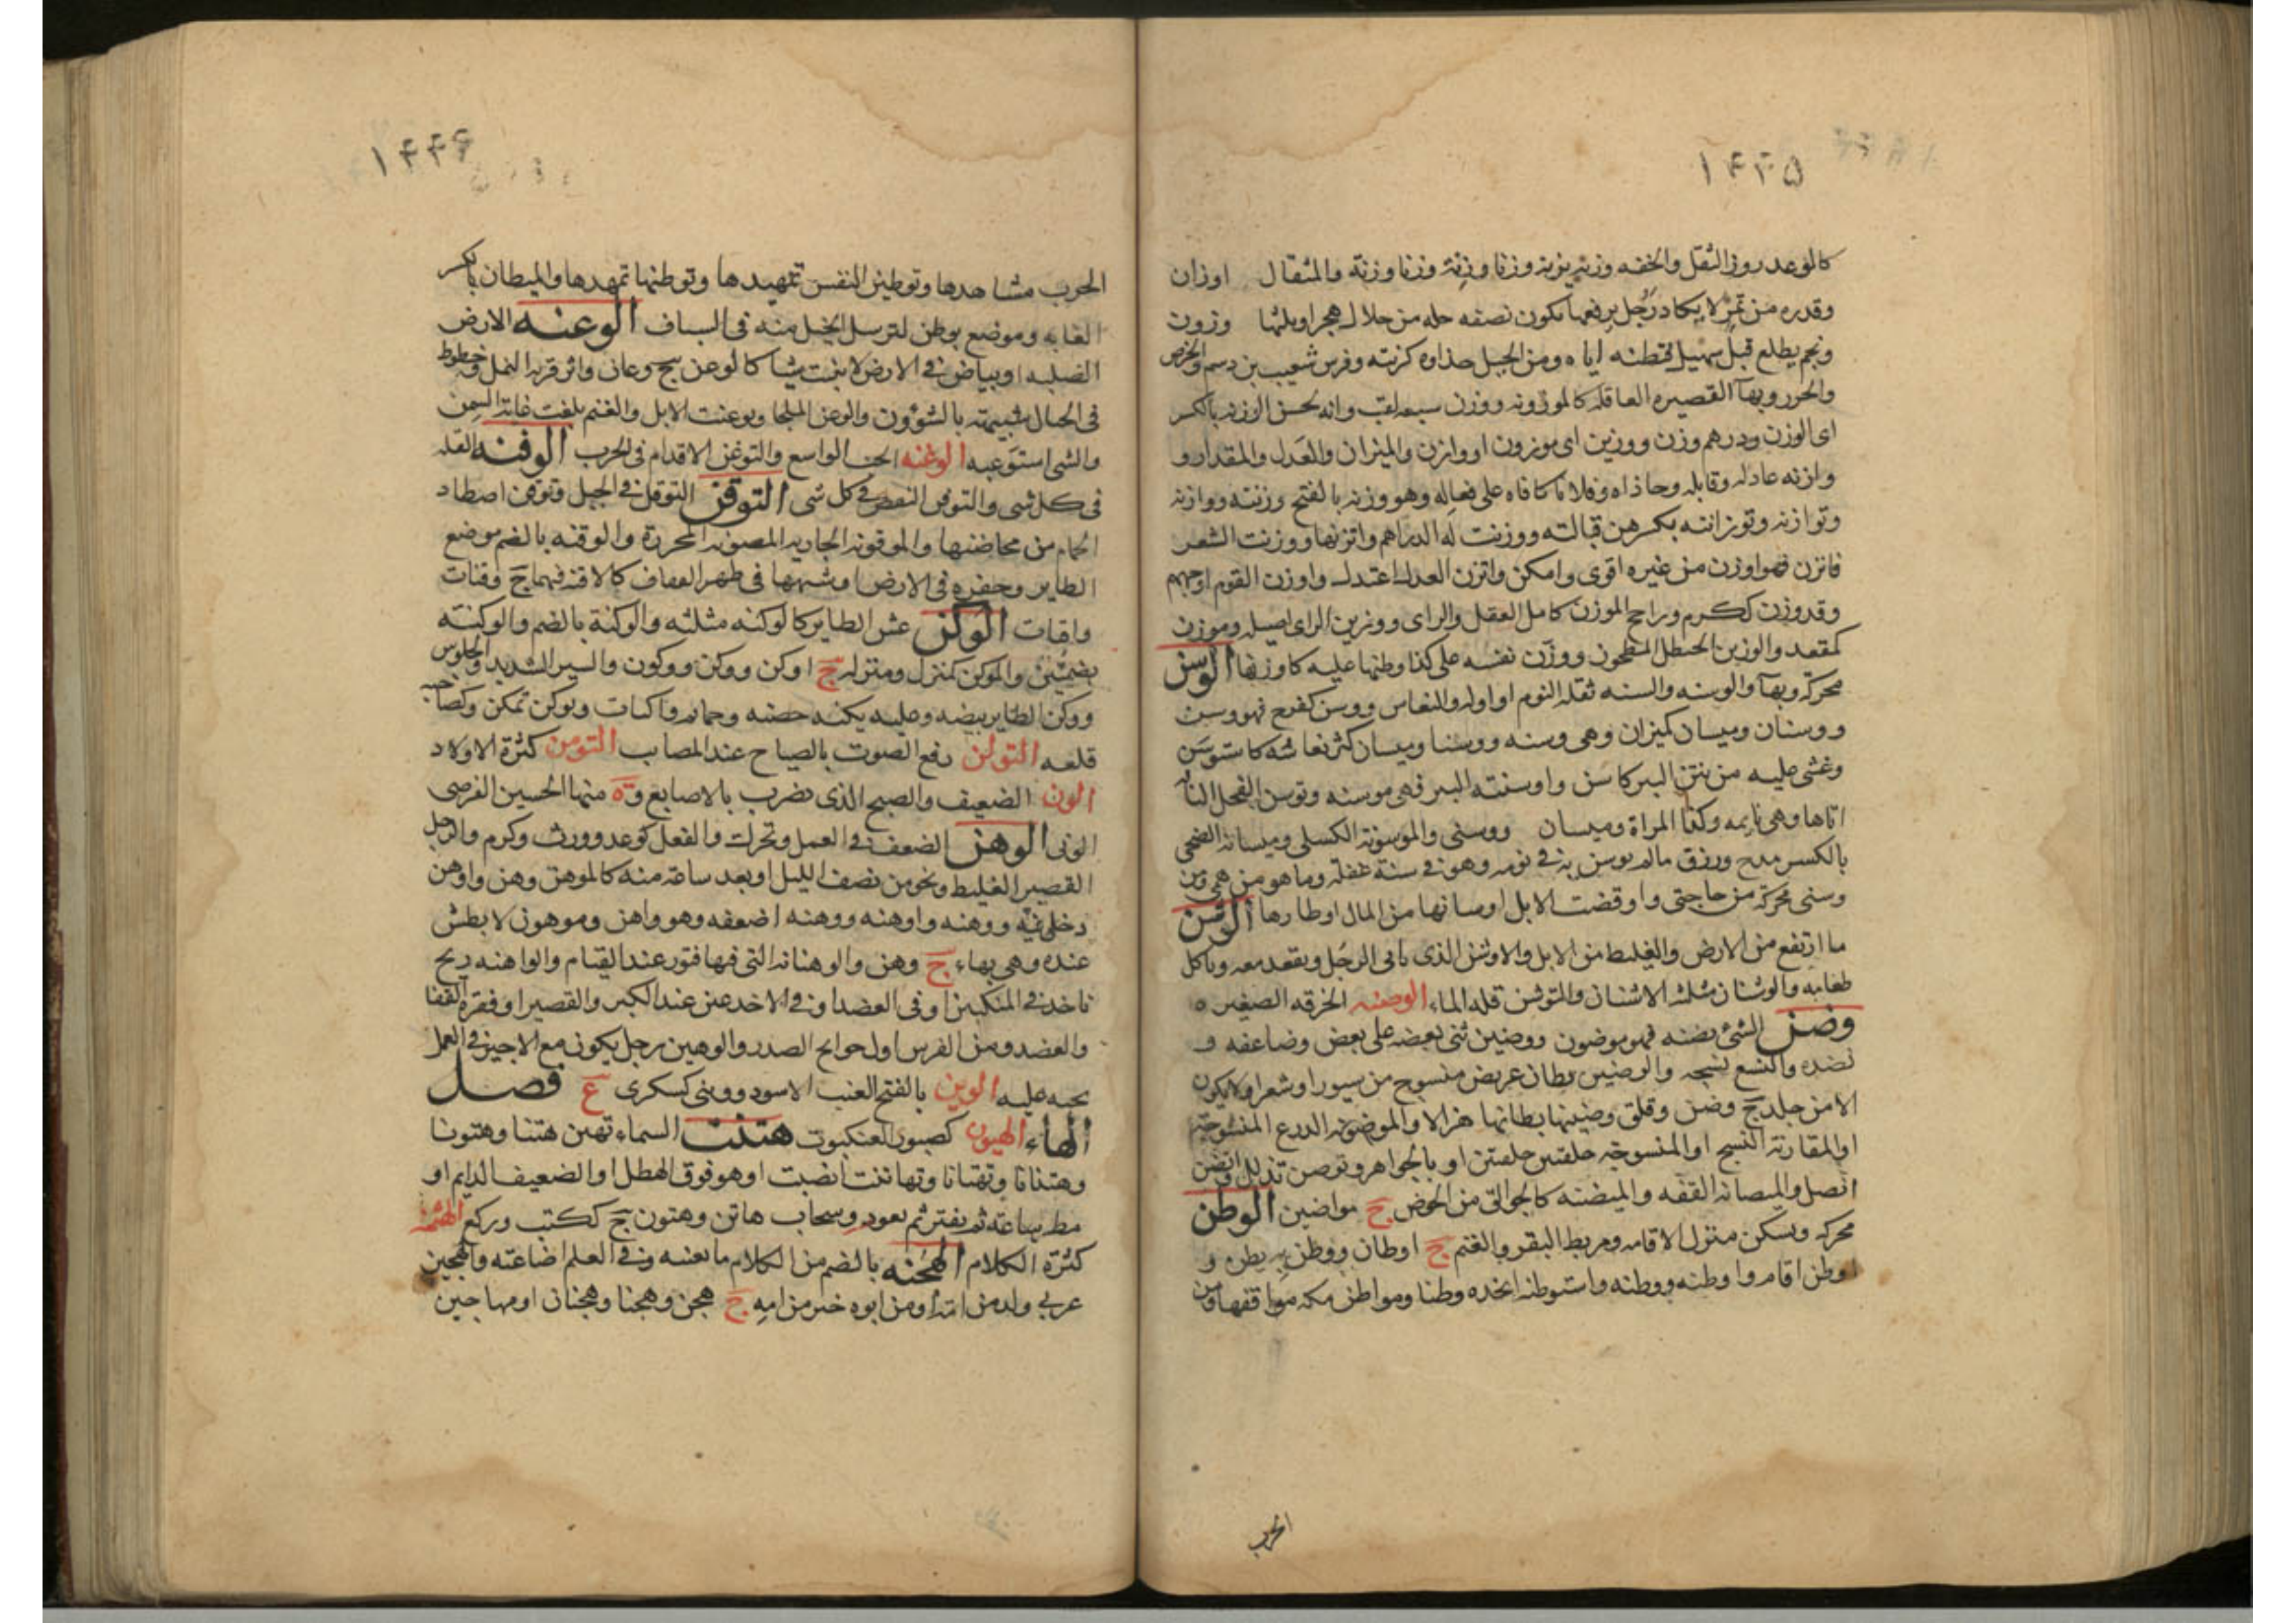 ۱۴۴۵
كالوعد روز الثقل والخفه وزنه يزنه وزنا وزنة وزنا وزنة والمثقال اوزان
وقدره من تمر لا يكاد رجل يرفعها يكون نصفه حله من جلال هجر او ثلثها وزون
ونجم يطلع قبل سهيل فتظنه اياه ومن الجبل حذاوه كزنته وفرس شعيب بن دسم والخرص
والحرر وبهآ القصيره العاقله كالموزونه ووزن سبعه لقب وانه لحسن الوزنه بالكسر
اى الوزن ودرهم وزن ووزين اى موزون او وازن والميزان والعدل والمقدار و
وازنه عادله وقابله وحاذاه وفلانا كافاه على فعاله وهو وزنه بالفتح وزنته ووازنه
وتوازنه وتوزانته بكسرهن قبالته ووزنت له الدراهم واتزنها ووزنت الشعر
فاتزن فهو اوزن من غيره اقوى وامكن واتزن العدل اعتدل واوزن القوم اوجههم
وقد وزن ككرم وراجح الموزن كامل العقل والراى ووزين الراى اصيله وموزن
كمقعد والوزين الحنظل المطحون ووزن نفسه على كذا وطنها عليه كاوزنها الوسن
محركه وبهآ والوسنه والسنه ثقله النوم او اوله والنعاس ووسن كفرح فهو وسن
ووسنان وميسان كميزان وهى وسنه ووسنا وميسان كثر نعاسه كاستوسن
وغشى عليه من نتن البير كاسن واوسنته البير فهى موسنه وتوسن الفحل الناقه
اتاها وهى نايمه وكذا المراة وميسان ووسنى والموسونة الكسلى وميسانه الضحى
بالكسر مدح ورزق مالم يوسن به فى نومه وهو فى سنة غفله وما هو من همى ومن
وسنى محركه من حاجتى واوقضت الابل اوسانها من المال اوطارها الوشن
ما ارتفع من الارض والغليظ من الابل والاوشن الذى ياتى الرجل ويقعد معه وياكل
طعامه والوشنان مثلثه الاشنان والتوشن قله الماء الوصنه الخرقه الصغيره
وضن الشئ يضنه فهو موضون ووضين ثنى بعضه على بعض وضاعفه و
نضده والنسع نسجه والوضين بطان عريض منسوج من سيور او شعر او لا يكون
الا من جلد ج وضن وقلق وضينها بطانها هزالا والموضونه الدرع المنسوجه
او المقاربة النسج او المنسوجه حلقتين حلقتين او بالجواهر وتوضن تذلل واتضن
اتصل والميضانه القفه والميضنه كالجوالق من الخوص ج مواضين الوطن
محركه ويسكن منزل الاقامه ومربط البقر والغنم ج اوطان ووطن به يطن و
اوطن اقام واوطنه ووطنه واستوطنه اتخذه وطنا ومواطن مكه مواقفها ومن
الحرب
۱۴۴۶
الحرب مشاهدها وتوطين النفس تمهيدها وتوطنها تمهدها والميطان بالكسر
الغايه وموضع يوطن لترسل الخيل منه فى السباق الوعنه الارض
الصلبه او بياض فى الارض لا ينبت شيا كالوعن ج وعان واثر قريه النمل وخطوط
فى الجبال شبيهته بالشؤون والوعن الملجا وتوعنت الابل والغنم بلغت غاية السمن
والشى استوعبه الوغنه الجب الواسع والتوغن الاقدام فى الحرب الوفنه القله
فى كل شى والتوفن النقص فى كل شى التوقن التوقل فى الجبل وتوقن اصطاد
الحمام من محاضنها والموقونه الجاريه المصونه المخدرة والوقنه بالضم موضع
الطاير وحفره فى الارض او شبهها فى ظهر القفاف كالاقنه فيهما ج وقنات
واقنات الوكن عش الطاير كالوكنه مثلثه والوكنة بالضم والوكنته
بضمتين والموكن كمنزل ومنزله ج اوكن ووكن ووكون والسير الشديد والجلوس
ووكن الطاير بيضه وعليه يكنه حضنه وحمام واكنات وتوكن تمكن وكصاحبه
قلعه التولن رفع الصوت بالصياح عند المصاب التومن كثرة الاولاد
الون الضعيف والصبح الذى يضرب بالاصابع وة منها الحسين الفرضى
الونى الوهن الضعف فى العمل وتحرك والفعل كوعد وورث وكرم والرجل
القصير الغليظ ونحو من نصف الليل او بعد ساعة منه كالموهن وهن واوهن
دخل فيه ووهنه واوهنه ووهنه اضعفه وهو واهن وموهون لا بطش
عنده وهى بهاء ج وهن والوهنانه التى فيها فتور عند القيام والواهنه ريح
تاخذ فى المنكبين او فى العضد او فى الاخدعين عند الكبر والقصيرا وفقره القفا
والعضد ومن الفرس اول جوانح الصدر والوهين رجل يكون مع الاجير فى العمل
يحثه عليه الوين بالفتح العنب الاسود ووينى كسكرى ع فصل
الهاء الهبون كصبور العنكبوت هتنت السماء تهتن هتنا وهتونا
وهتنانا وتهتانا وتهاتنت انصبت او هو فوق الهطل او الضعيف الدايم او
مطر ساعة ثم يفتر ثم يعود وسحاب هاتن وهتون ج ككتب وركع الهثمنه
كثرة الكلام الهجنه بالضم من الكلام ما يعنيه وفى العلم اضاعته والهجين
عربى ولد من امة او من ابوه خير من امه ج هجن وهجنا وهجنان او مهاجين